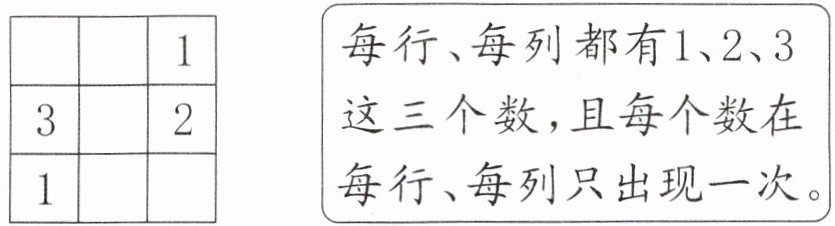 1
3 2
1
每行、每列都有1、2、3
这三个数,且每个数在
每行、每列只出现一次。